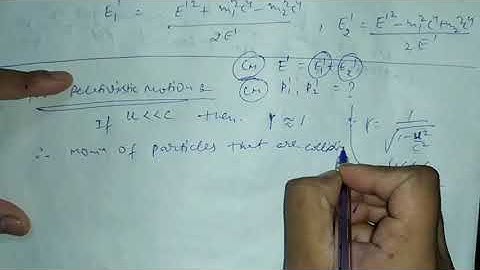 E₁' = E'² + m₁²c⁴ - m₂²c⁴ / 2E' , E₂' = E'² - m₁²c⁴ + m₂²c⁴ / 2E'
CM E' = E₁' + E₂'
Relativistic motion : CM P₁', P₂' = ?
If u << c then γ ≈ 1 γ = 1 / √(1 - u²/c²)
∴ momᵐ of particles that are collidi